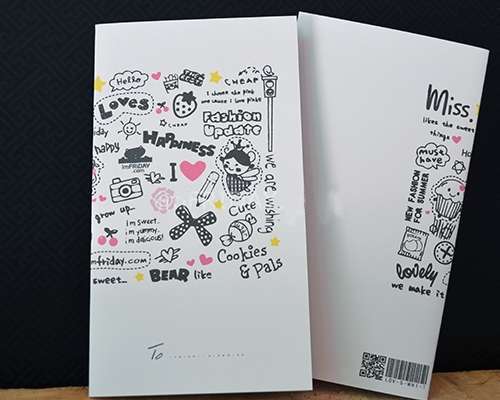 Hello
CHEAP
I choose the pink
one cause I love pinks
Loves
CHEAP
Fashion
Update
happy
HAPPINESS
ImFRiDAY
.com
I
we are wishing
grow up..
Cute
im sweet.
im yummy.
im delicious!
Cookies
& Pals
mfriday.com
BEAR like
sweet...
To
Miss.
likes the sweet
things
must
have
NEW FASHION
FOR SUMMER
lovely
we make it